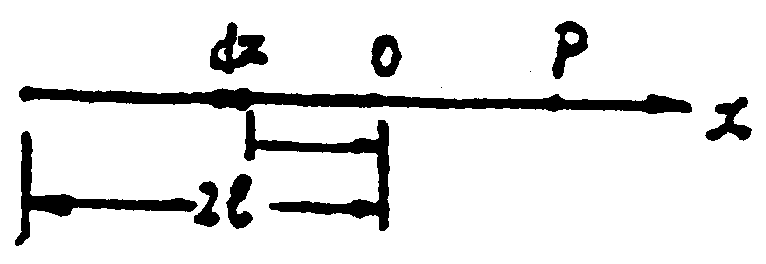 dx O P
x
2l